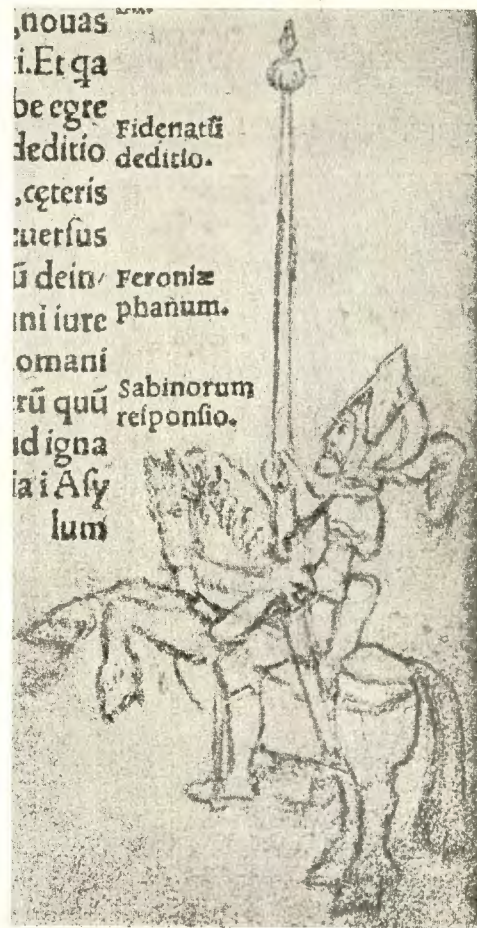 ,nouas
i.Et qa
be egre
deditio
,cęteris
uersus
ū dein
uni iure
omani
rū quū
ud igna
ia i Asy
lum
Fidenatū
deditio.
Feroniæ
phanum.
Sabinorum
responsio.